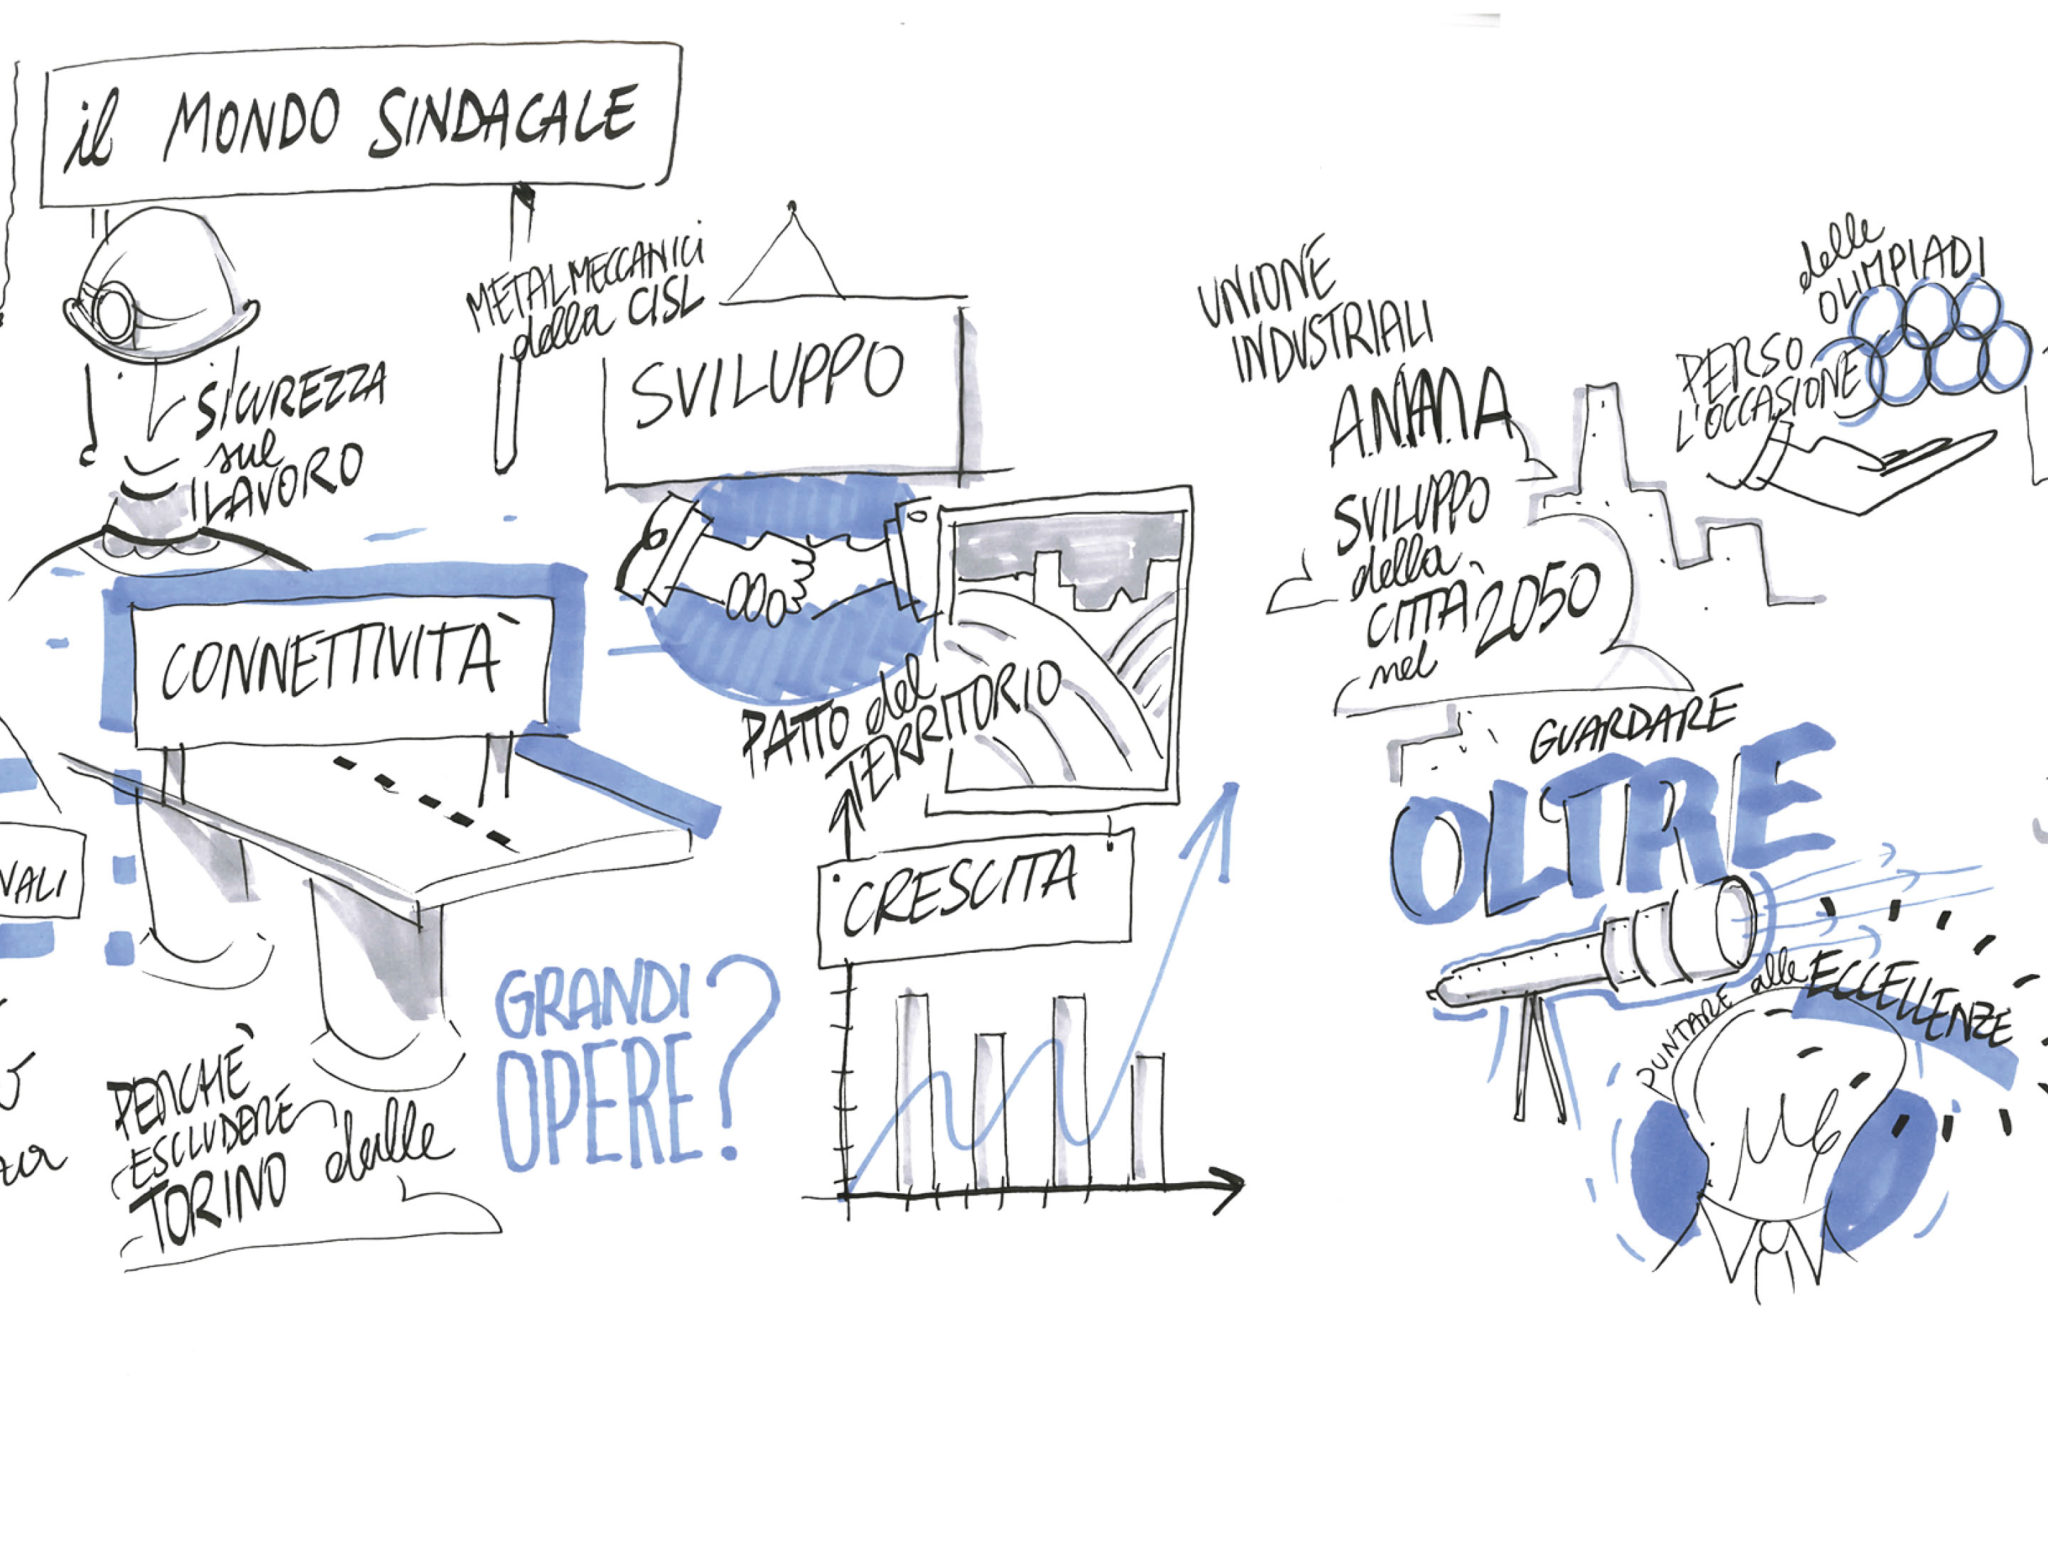 il MONDO SINDACALE
SICUREZZA
sul
LAVORO
METALMECCANICI
della CISL
SVILUPPO
CONNETTIVITÀ
PATTO del
TERRITORIO
CRESCITA
GRANDI
OPERE?
PERCHÉ
ESCLUDERE
TORINO dalle
UNIONE
INDUSTRIALI
SVILUPPO
della
CITTÀ
nel 2050
PERSO
L'OCCASIONE
delle
OLIMPIADI
GUARDARE
OLTRE
PUNTARE alle ECCELLENZE